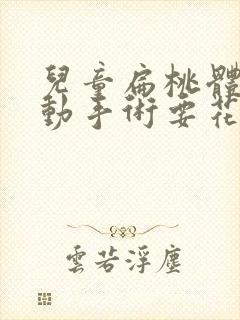 兒童扁桃體
動手術要花
雲若浮塵